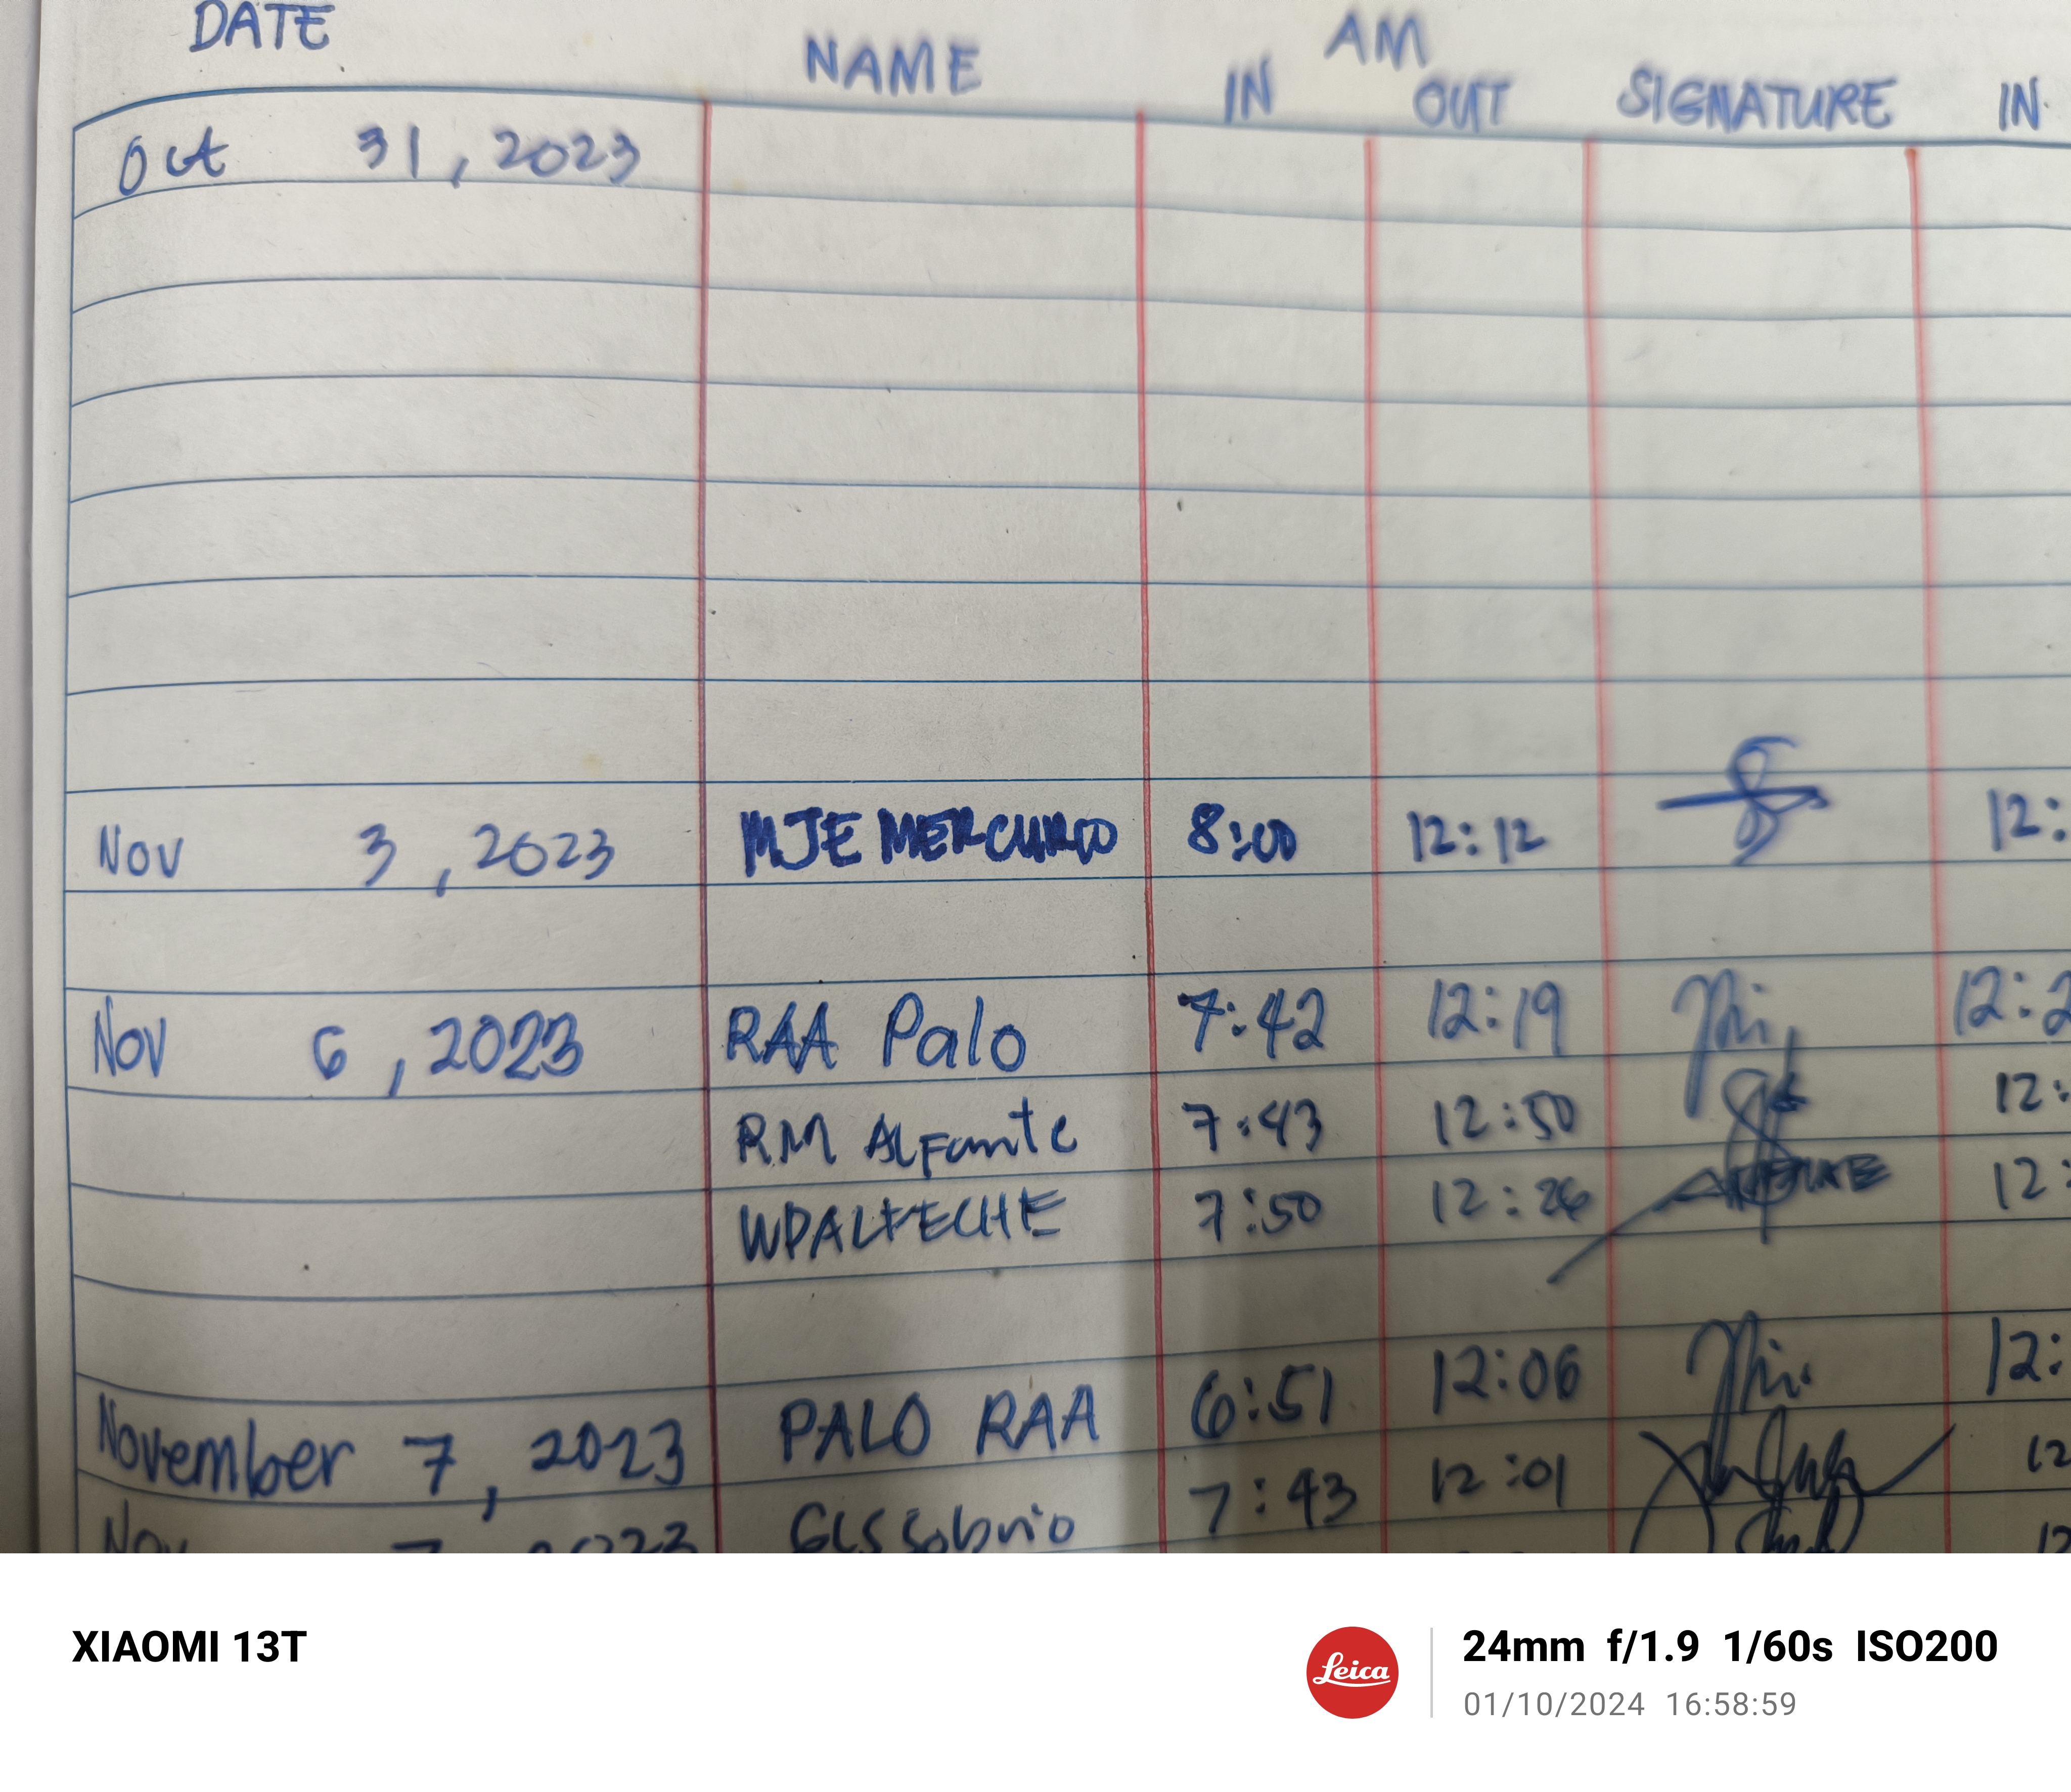 DATE NAME AM
IN OUT SIGNATURE IN
Oct 31, 2023
Nov 3, 2023 MJE MERCURIO 8:00 12:12 12:
Nov 6, 2023 RAA Palo 7:42 12:19 12:2
RM ALFante 7:43 12:50 12:
WPALFECHE 7:50 12:26 12:
November 7, 2023 PALO RAA 6:51 12:06 12:
Nov 7, 2023 GLS Sobrio 7:43 12:01 12
12
XIAOMI 13T
Leica
24mm f/1.9 1/60s ISO200
01/10/2024 16:58:59